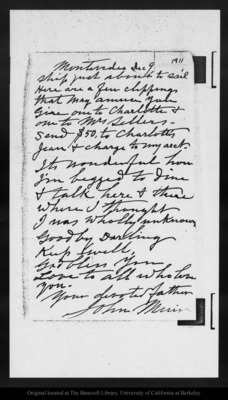 1911
Montevideo Dec 9
ship just about to sail
Here are a few clippings
that may amuse you
Give one to Charlotte &
one to Mrs Sellers -
Send $50. to Charlotte,
Jean & charge to my acct.
Its wonderful how
I'm begged to dine
& talk here & there
where I thought
I was wholly unknown
Goodby Darling
Keep well
God bless you
Love to all who love
you.
Your devoted father
John Muir
Original located at The Bancroft Library, University of California at Berkeley